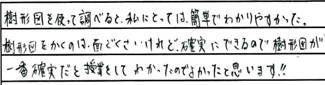 樹形図を使って調べると、私にとっては、簡単でわかりやすかった。
樹形図をかくのは、面どくさいけれど、確実にできるので樹形図が
一番確実だと授業をしてわかったのでよかったと思います!!